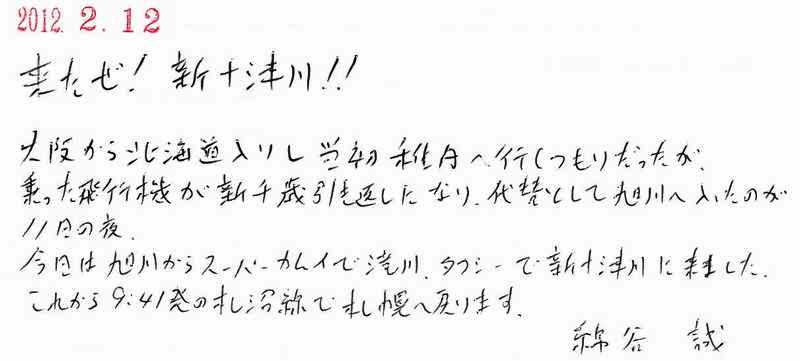 2012. 2. 12
来たぜ! 新十津川!!
大阪から北海道入りし当初稚内へ行くつもりだったが、
乗った飛行機が新千歳引き返しになり、代替として旭川へ入ったのが
11日の夜。
今日は旭川からスーパーカムイで滝川、タクシーで新十津川に来ました。
これから9:41発の札沼線で札幌へ戻ります。
綿谷 誠